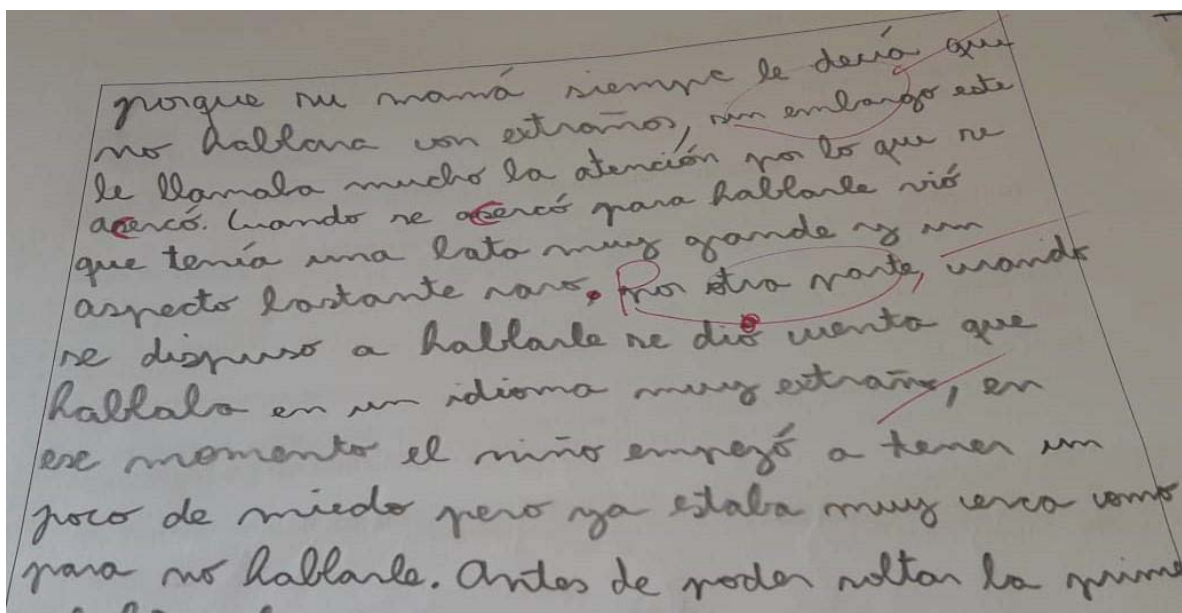 porque su mamá siempre le decía que
no hablara con extraños, sin embargo este
le llamaba mucho la atención por lo que se
acercó. Cuando se acercó para hablarle vió
que tenía una bata muy grande y un
aspecto bastante raro. Por otra parte, cuando
se dispuso a hablarle se dio cuenta que
hablaba en un idioma muy extraño, en
ese momento el niño empezó a tener un
poco de miedo pero ya estaba muy cerca como
para no hablarle. Antes de poder soltar la prime